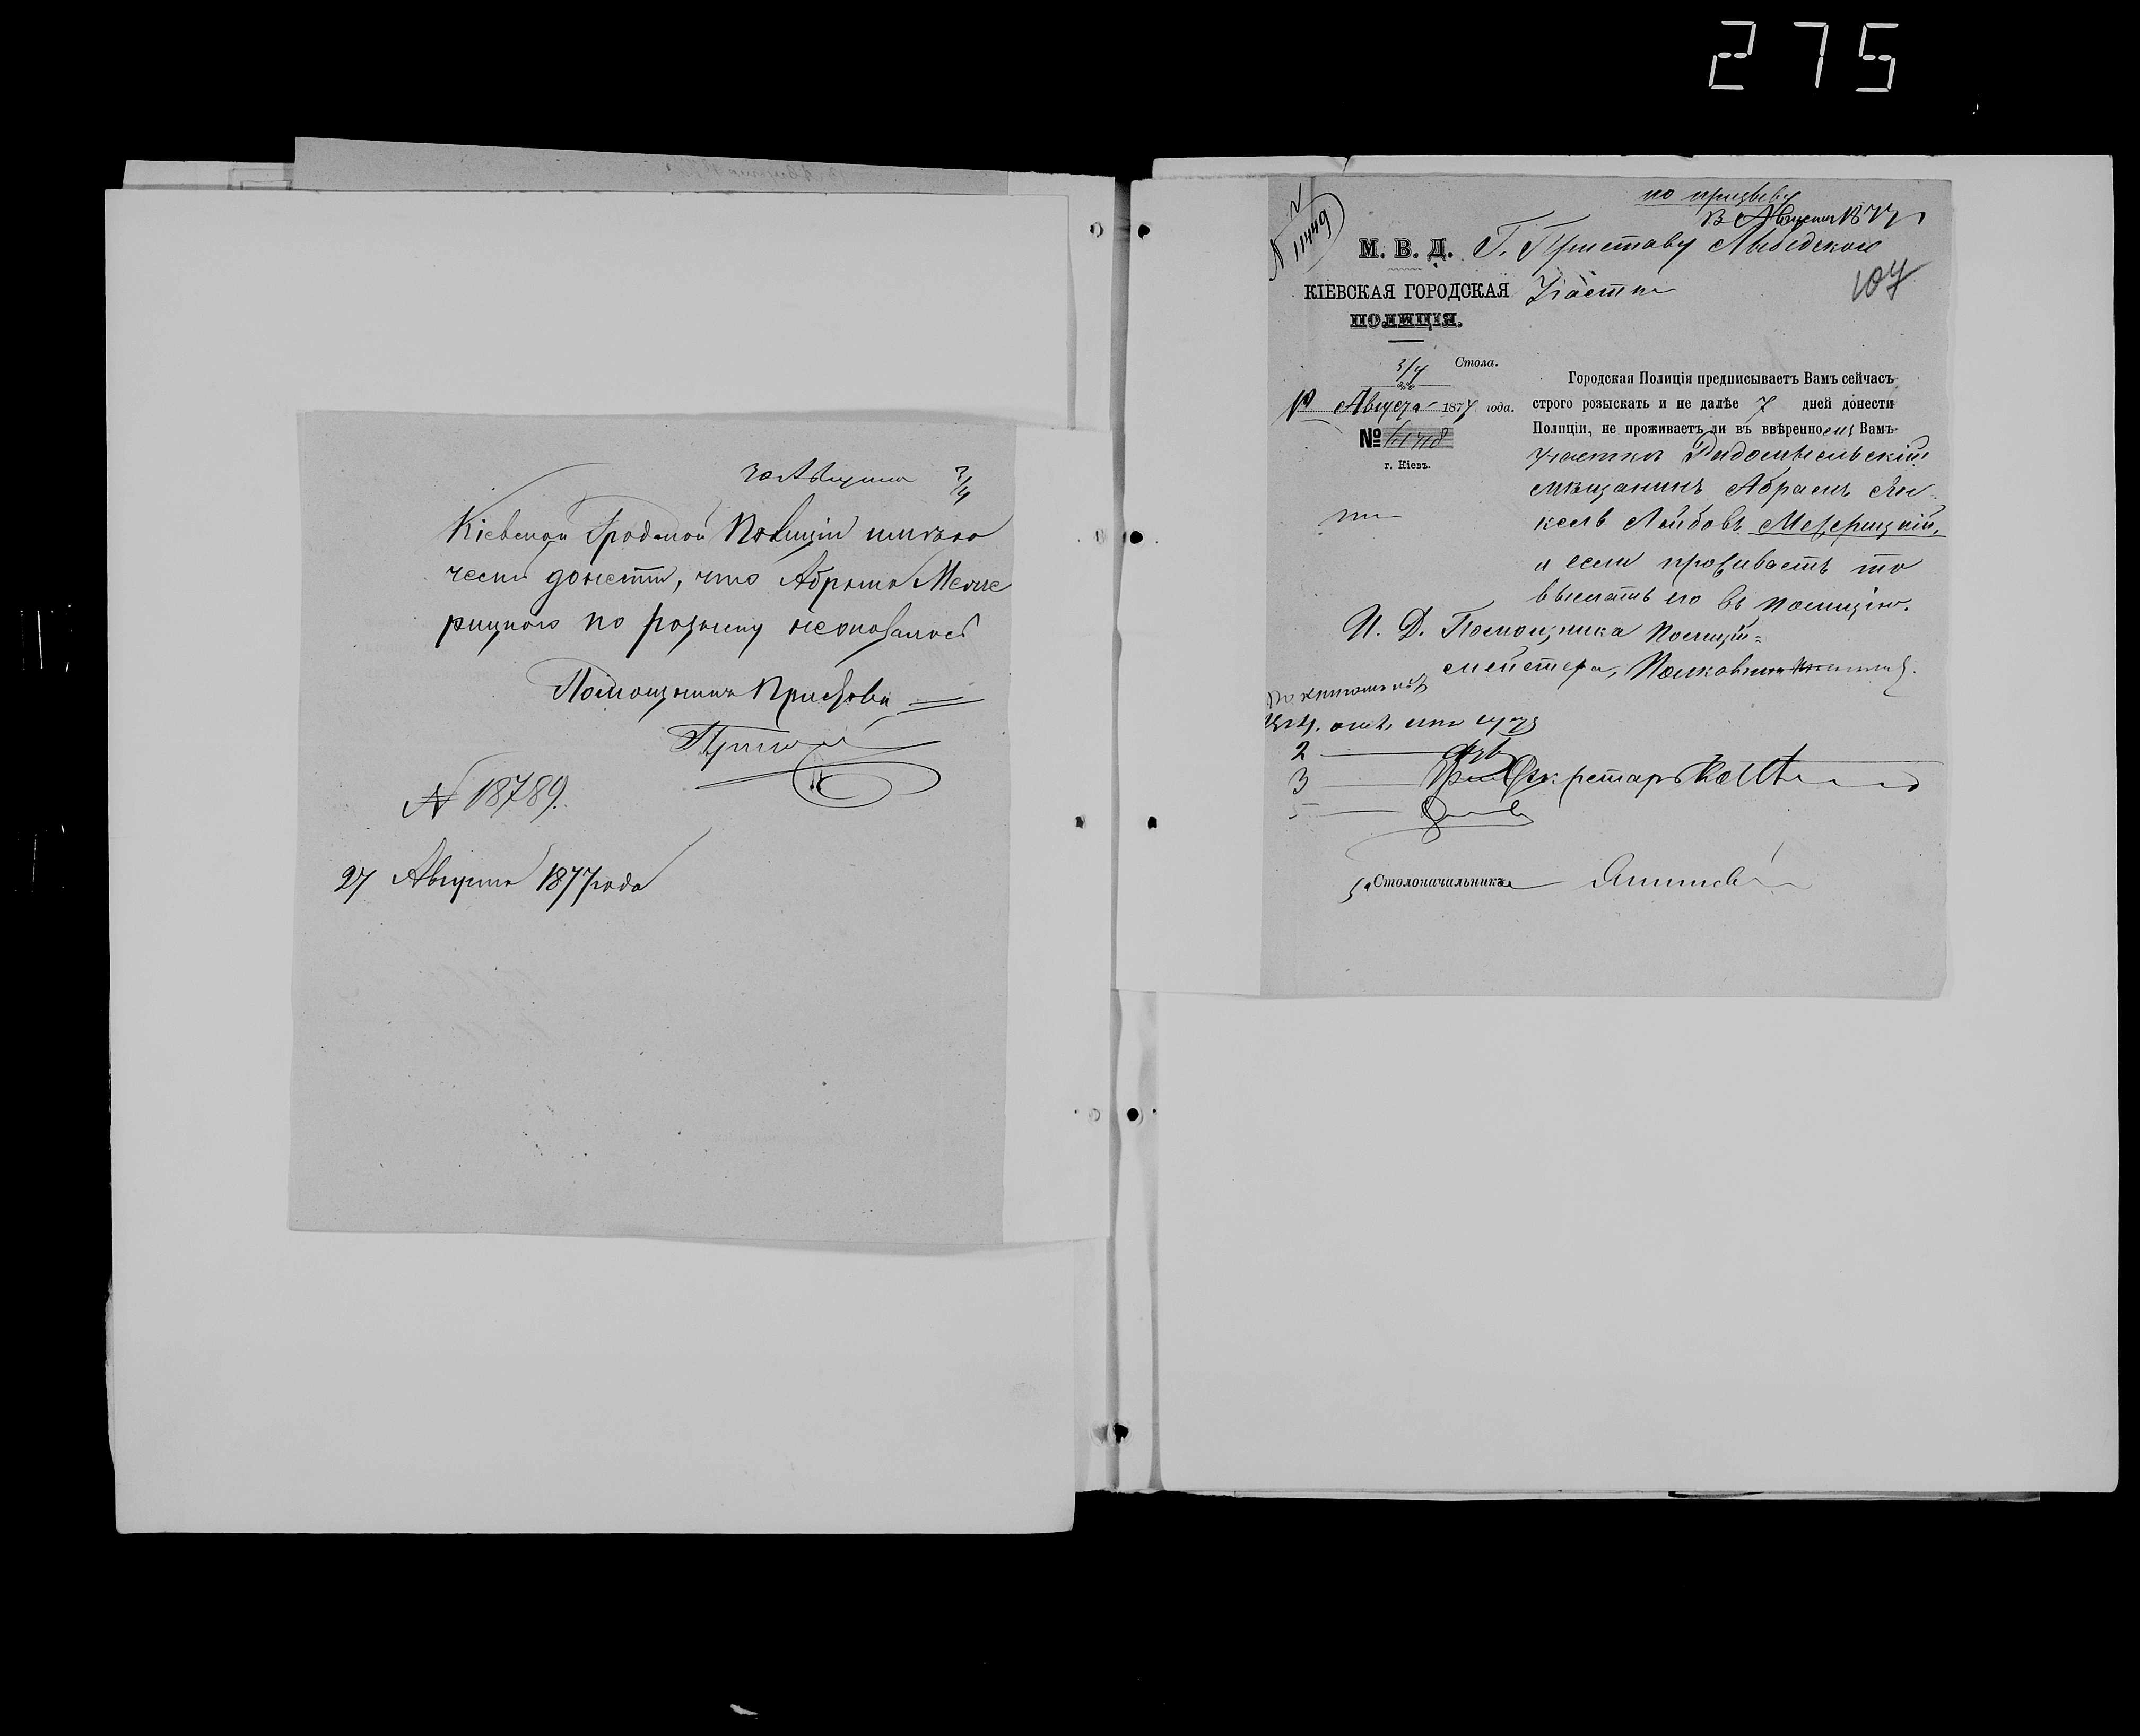 275
30 Августа 3/4
Кіевской Градской Полиціи имѣю
честь донести, что Абрама Межи
рицкого по розыску неоказалось
Помощникъ Пристава
N 18789.
27 Августа 1877 года
N 11449
по призыву
13 Августа 1877
М. В. Д. Г. Приставу Лыбедского
КІЕВСКАЯ ГОРОДСКАЯ Участка
107
ПОЛИЦІЯ.
3/4 Стола.
Августа 1877 года.
№ 61718
г. Кіевъ.
Городская Полиція предписываетъ Вамъ сейчасъ
строго розыскать и не далѣе 7 дней донести
Полиціи, не проживаетъ ли въ ввѣренномъ Вамъ
участкѣ Радомысльскій
мѣщанинъ Абрамъ Ян-
кель Лейбовъ Межерицкій,
и если проживаетъ то
выслать его въ полицію.
И. Д. Помощника Полицій=
мейстера, Полковникъ
2
3
Секретарь
Столоначальникъ